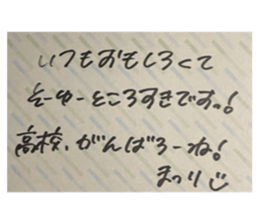 いつもおもしろくて
そーゆーところすきですっ!
高校、がんばろーね!
まつり